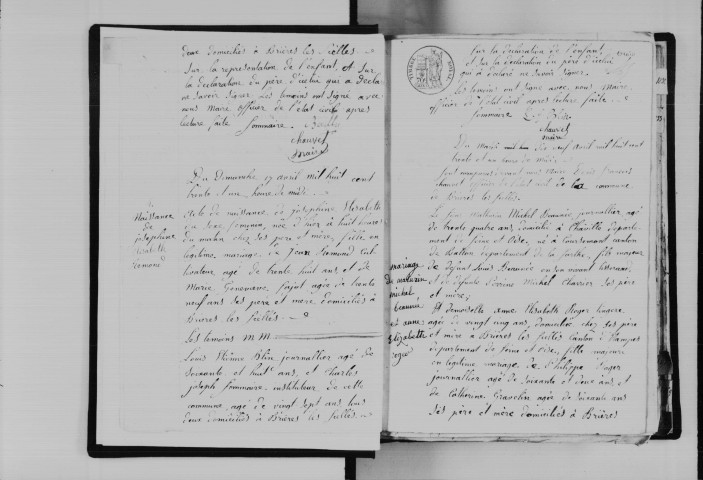 deux domiciliés à Brières les scellés
Sur la représentation de l'enfant et sur
la déclaration du père d'icelui qui a déclaré
ne savoir signer. Les témoins ont signé avec
nous Maire officier de l'état civil après
lecture faite Sommaire
chauvet
maire
Du Dimanche 17 avril mil huit cent
trente et un heure de midi
Acte de naissance de josephine Elisabeth
du sexe féminin, née d'hier à huit heures
du matin chez ses père et mère, fille en
légitime mariage de Jean Edmond cul
tivateur agé de trente huit ans et de
Marie Genevieve agée de trente
neuf ans ses père et mère domiciliés à
Brieres les scellés
Les témoins MM
Louis Etienne Blin journallier agé de
soixante et huit ans, et Charles
joseph Sommaire instituteur de cette
commune agé de vingt sept ans tous
deux domiciliés à Brières les scellés
Naissance
de
josephine
Elisabeth
Sur la déclaration de l'enfant
et sur la déclaration du père d'icelui
qui a déclaré ne savoir signer
les témoins ont signé avec nous Maire
officier de l'état civil après lecture faite
Sommaire
chauvet
maire
Du mardi dix neuf avril mil huit cent
trente et un heure de midi
sont comparus devant nous Maire
chauvet officier de l'état civil de la commune
de Brières les scellés
Le sieur Mathurin Michel Beauvié journallier agé
de trente quatre ans, domicilié à departe-
ment de seine et oise, né à canton
de Ballon département de la Sarthe, fils majeur
de defunt Louis Beauvié en son vivant
et de defunte Perrine Michel Charrier ses père
et mère
Et demoiselle anne Elisabeth Roger lingere
agée de vingt cinq ans, domiciliée chez ses père
et mère à Brières les scellés canton d'Etampes
département de seine et oise, fille majeure
en legitime mariage de Philippe Roger
journallier agé de soixante et deux ans et
de Catherine Gravelin agée de soixante ans
ses père et mère domiciliés à Brières
mariage
de mathurin
michel
beauvié
et anne
Elizabette
roger